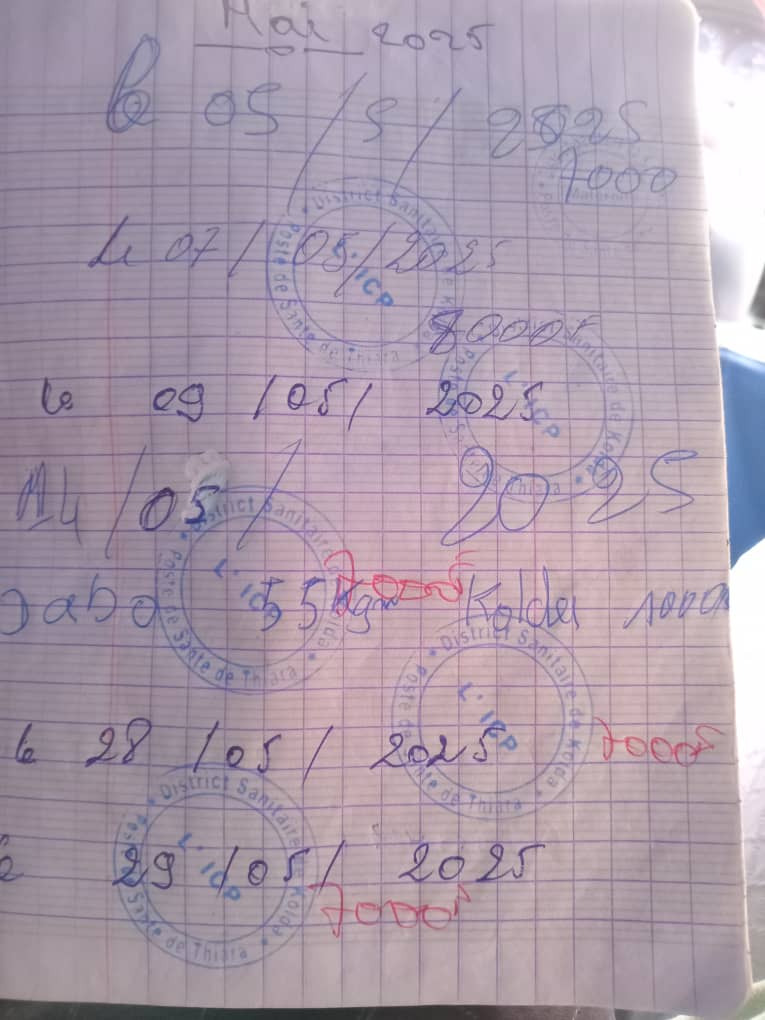 Mai 2025
Le 05/5/2025
7000
Le 07/05/2025
District Sanitaire de Kolda
Poste de Santé de Thiara
L'ICP
8000f
le 09/05/2025
District Sanitaire de Kolda
Poste de Santé de Thiara
L'ICP
14/05/2025
District Sanitaire de Kolda
Poste de Santé de Thiara
L'ICP
7000f
55 kg Kolda
District Sanitaire de Kolda
Poste de Santé de Thiara
L'ICP
le 28/05/2025 7000f
District Sanitaire de Kolda
Poste de Santé de Thiara
L'ICP
29/05/2025
7000f